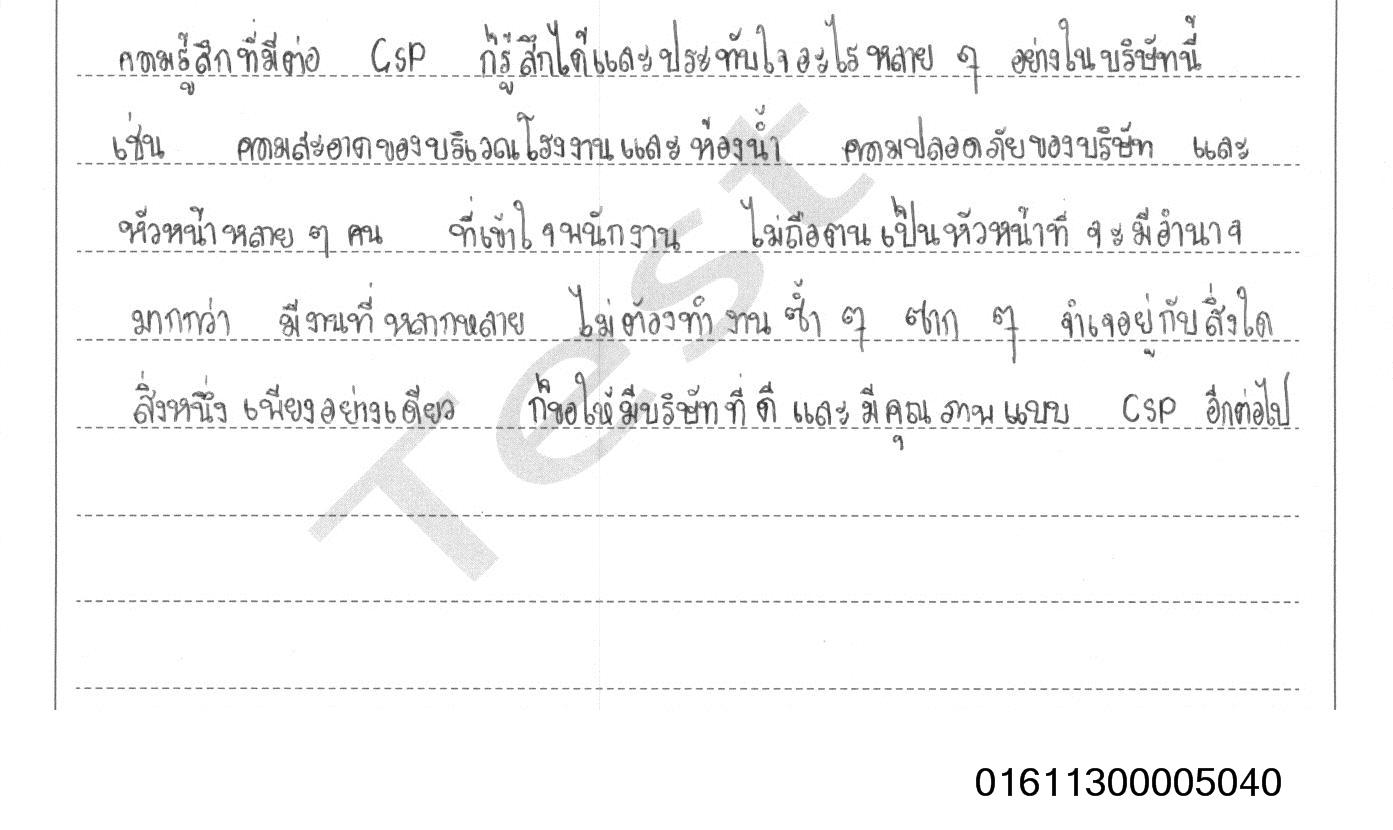 ความรู้สึกที่มีต่อ CSP ก็รู้สึกได้และประทับใจอะไรหลาย ๆ อย่างในบริษัทนี้
เช่น ความสะอาดของบริเวณโรงงานและห้องน้ำ ความปลอดภัยของบริษัท และ
หัวหน้าหลาย ๆ คน ที่เข้าใจพนักงาน ไม่ถือตนเป็นหัวหน้าที่จะมีอำนาจ
มากกว่า มีงานที่หลากหลาย ไม่ต้องทำงานซ้ำ ๆ ซาก ๆ จำเจอยู่กับสิ่งใด
สิ่งหนึ่งเพียงอย่างเดียว ก็ขอให้มีบริษัทที่ดีและมีคุณภาพแบบ CSP อีกต่อไป
Test
01611300005040